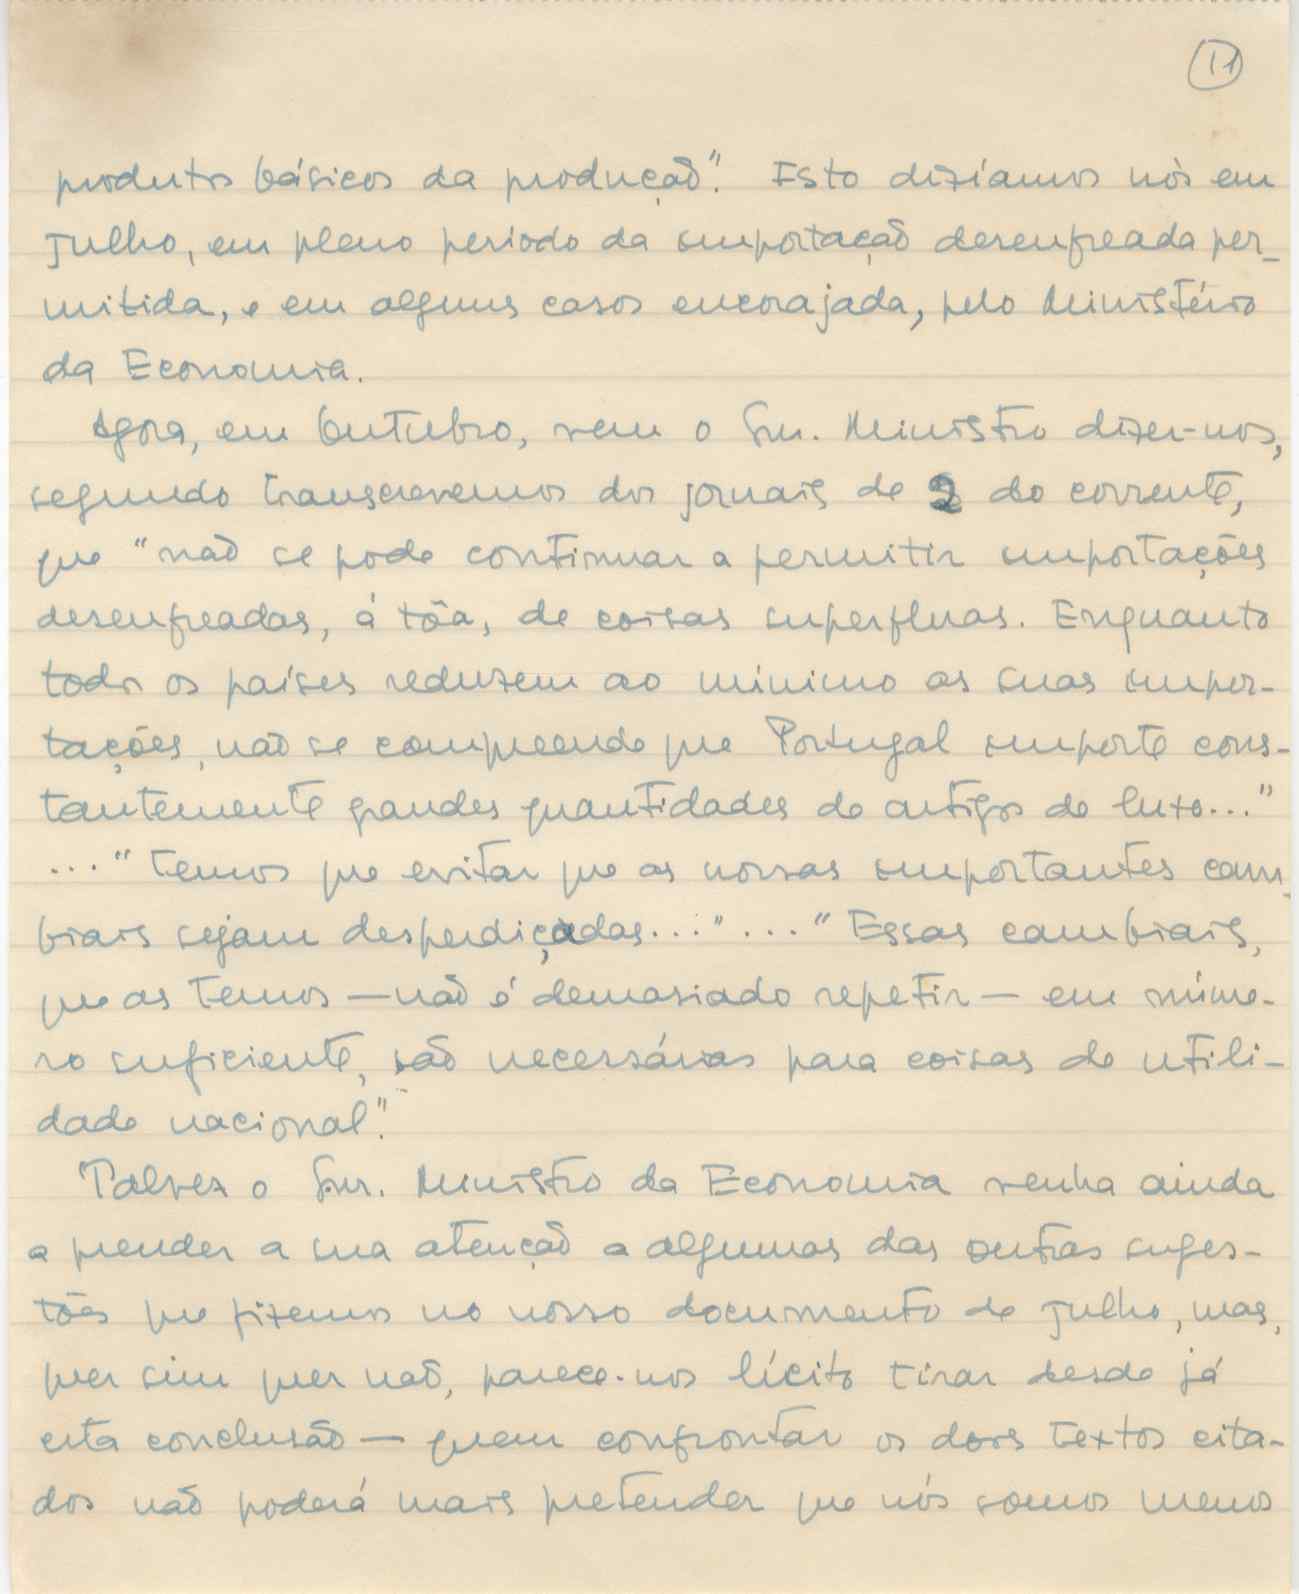 11
produtos básicos da produção". Isto dizíamos nós em
Julho, em pleno período da importação desenfreada per-
mitida, e em alguns casos encorajada, pelo Ministério
da Economia.
Agora, em Outubro, vem o Snr. Ministro dizer-nos,
segundo transcrevemos dos jornais de 2 do corrente,
que "não se pode continuar a permitir importações
desenfreadas, á tôa, de coisas superfluas. Enquanto
todos os países reduzem ao mínimo as suas impor-
tações, não se compreende que Portugal importe cons-
tantemente grandes quantidades de artigos de luxo..."
..." Temos que evitar que as nossas importantes cam-
biais sejam desperdiçadas..."..." Essas cambiais,
que as temos — não é demasiado repetir — em núme-
ro suficiente, são necessárias para coisas de utili-
dade nacional".
Talvez o Snr. Ministro da Economia venha ainda
a prender a sua atenção a algumas das outras suges-
tões que fizemos no nosso documento de Julho, mas,
quer sim quer não, parece-nos lícito tirar desde já
esta conclusão — quem confrontar os dois textos cita-
dos não poderá mais pretender que nós somos menos